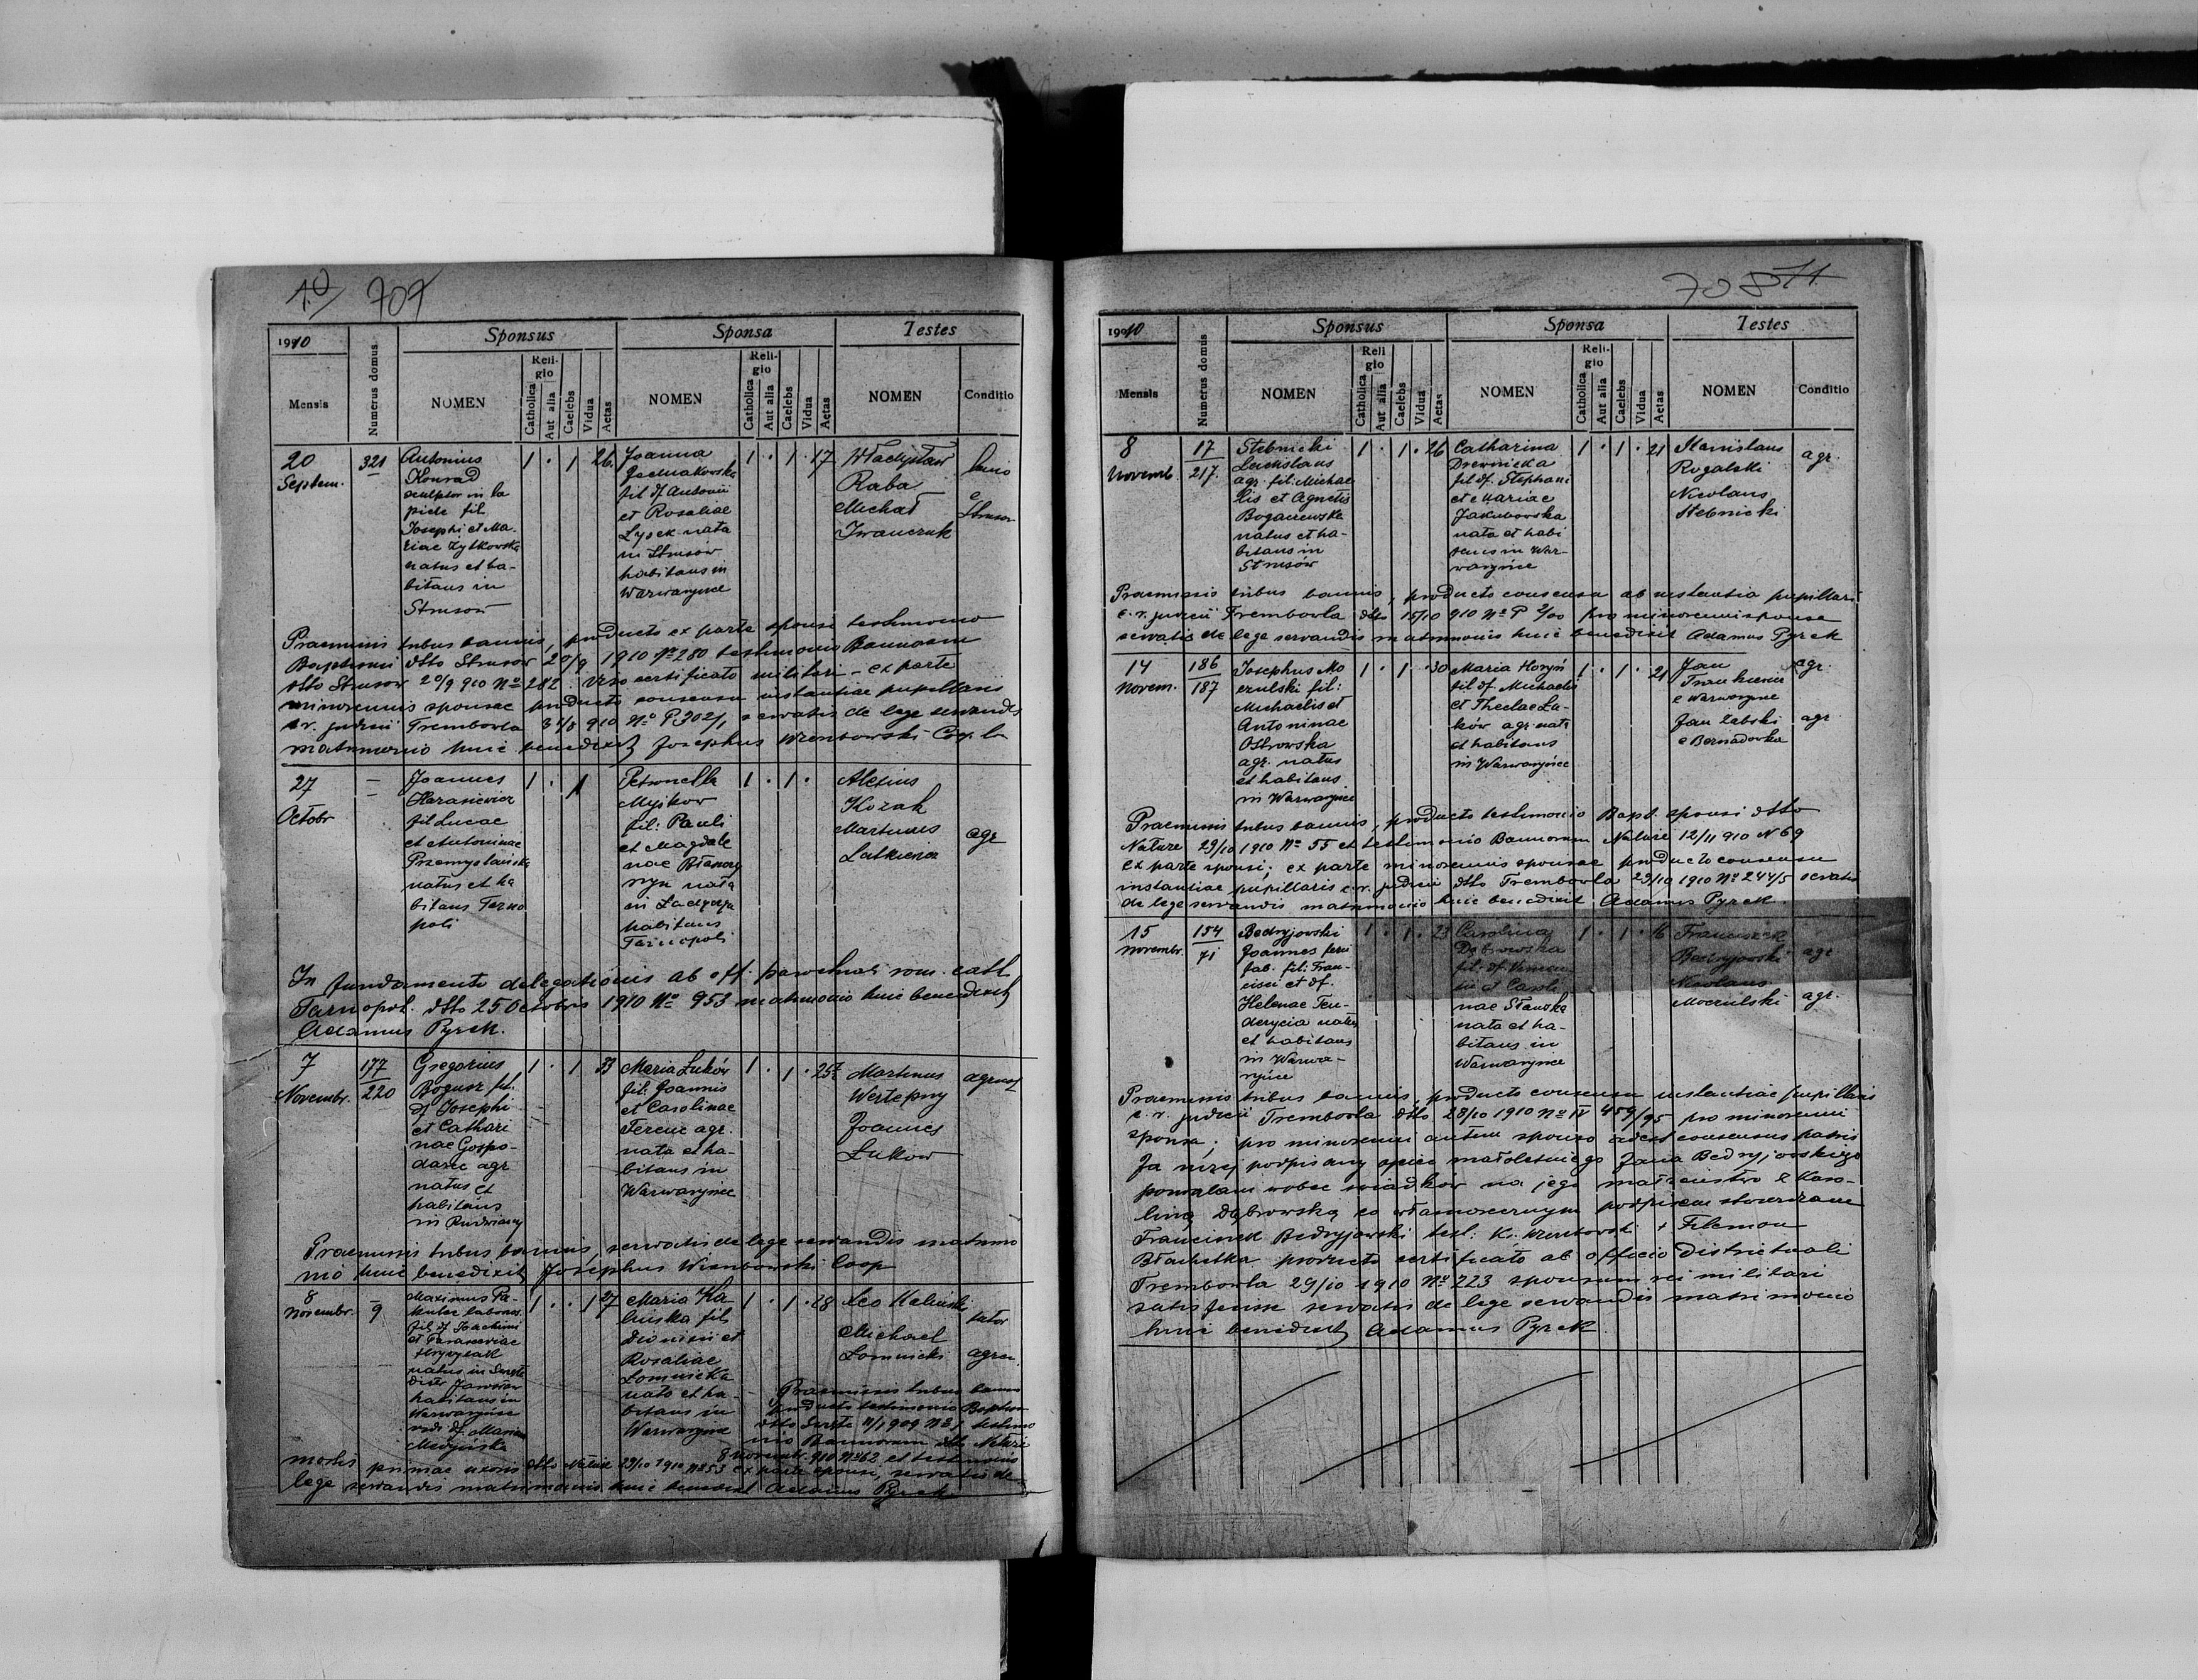 10 707
1910
Mensis
Numerus domus
Sponsus
NOMEN
Religio
Catholica
Aut alia
Caelebs
Vidua
Aetas
Sponsa
NOMEN
Religio
Catholica
Aut alia
Caelebs
Vidua
Aetas
Testes
NOMEN
Conditio
20
Septem.
321
Antonius
Konrad
sculptor in la
pide fil.
Josephi et Ma-
riae Żytkowska
natus et ha-
bitans in
Strusów
1 . 1 26
Joanna
fil df Antonii
et Rosaliae
Łysek nata
in Strusów
habitans in
Warwaryńce
1 . 1 . 17
Władysław
Raba
Michał
Iwanczuk
e
Strusów
Praemissis tribus bannis, producto ex parte sponsi testimonio
Baptismi dtto Strusów 20/9 1910 Nº 280 testimonio Bannorum
dtto Strusów 20/9 910 Nº 282 certificato militari – ex parte
minorennis sponsae producto consensu instantiae pupillaris
c. r. judicii Trembowla 910 Nº servatis de lege servandis
matrimonio huic benedixit Josephus Coop.
27
Octobr
Joannes
Harasiewicz
fil Lucae
et Antoninae
Przemyslańska
natus et ha
bitans Tarno
poli
1 . 1
Petronella
fil: Pauli
et Magdale
nae
nata
in
habitans
Tarnopoli
1 . 1 .
Alexius
Kozak
Martinus
Latkiewicz
agr
In fundamento delegationis ab off. parochiali rom. cath
Tarnopol. dtto 25 Octobris 1910 Nº 953 matrimonio huic benedixit
Adamus Pyrek.
7
Novembr.
177
220
Gregorius
Bogusz fil.
df Josephi
et Cathari
nae Gospo-
daric agr
natus et
habitans
in
1 . 1 33
Maria Łuków
fil: Joannis
et Carolinae
Ferenc agr.
nata et ha-
bitans in
Warwaryńce
1 . 1 . 25
Martinus
Wertepny
Joannes
Łukow
Praemissis tribus bannis, servatis de lege servandis matrimo
nio huic benedixit Josephus Coop
8
Novembr.
9
Maximus
fil df Joachimi
et Parasceviae
natus in
habitans in
Warwaryńce
1 . . 1 27
Maria Ka
lińska fil
Dionisii et
Rosaliae
Łomnicka
nata et ha-
bitans in
Warwaryńce
1 . 1 . 18
Leo Kaliński
Michael
Łomnicki
Praemissis tribus bannis
producto testimonio Baptismi
dtto 11/1 909 Nº testimo
nio Bannorum dtto Nałuże
8 Novemb. 910 Nº 62 et testimonio
mortis primae uxoris dtto Nałuże 29/10 1910 Nº 53 ex parte sponsi, servatis de
lege servandis matrimonio huic benedixit Adamus Pyrek
708 11
1910
Mensis
Numerus domus
Sponsus
NOMEN
Religio
Catholica
Aut alia
Caelebs
Vidua
Aetas
Sponsa
NOMEN
Religio
Catholica
Aut alia
Caelebs
Vidua
Aetas
Testes
NOMEN
Conditio
8
Novemb.
17
217
Stebnicki
Ladislaus
agr. fil: Michae
lis et Agnetis
natus et ha-
bitans in
Strusów
1 . 1 . 26
Catharina
Drewnicka
fil df. Stephani
et Mariae
Jakubowska
nata et habi
tans in War-
waryńce
1 . 1 . 21
Stanislaus
Rogalski
Nicolaus
Stebnicki
agr.
Praemissis tribus bannis, producto consensu ab instantia pupillari
c. r. judicii Trembowla dtto 15/10 910 Nº P pro minorenni sponsa
servatis de lege servandis matrimonio huic benedixit Adamus Pyrek
14
Novem.
186
187
Josephus Mo
czulski fil:
Michaelis et
Antoninae
Ostrowska
agr. natus
et habitans
in Warwaryńce
1 . 1 . 30
Maria Horyń
fil df. Michaelis
et Theclae Łu-
ków agr. nata
et habitans
in Warwaryńce
1 . 1 . 21
Jan
e Warwaryńce
Jan Żebski
e Bernadówka
agr.
agr.
Praemissis tribus bannis, producto testimonio Bapt. sponsi dtto
Nałuże 29/10 1910 Nº 55 et testimonio Bannorum Nałuże 12/11 910 N 69
ex parte sponsi; ex parte minorennis sponsae producto consensu
instantiae pupillaris c. r. judicii dtto Trembowla 29/10 1910 Nº 244/5 servatis
de lege servandis matrimonio huic benedixit Adamus Pyrek.
15
Novembr.
154
71
Bedryjowski
Joannes ferri
fab. fil: Fran-
cisci et df.
Helenae Ten-
derycia natus
et habitans
in Warwa-
ryńce
1 . 1 . 23
Carolina
Dąbrowska
fil: df Vincen-
tii et Caroli
nae Sławska
nata et ha-
bitans in
Warwaryńce
1 . 1 . 16
Franciszek
Bedryjowski
Nicolaus
Moczulski
agr
agr.
Praemissis tribus bannis, producto consensu instantiae pupillaris
c. r. judicii Trembowla dtto 28/10 1910 Nº IV 459/95 pro minorenni
sponsa; pro minorenni autem sponso adest consensus patris
Ja niżej podpisany ojciec małoletniego Jana Bedryjowskiego
pozwalam wobec świadków na jego małżeństwo z Karo-
liną Dąbrowską co własnoręcznym podpisem stwierdzam
Franciszek Bedryjowski test: + Filemon
Błachutka producto certificato ab officio Districtuali
Trembowla 29/10 1910 Nº 223 sponsum rei militari
satisfecisse servatis de lege servandis matrimonio
huic benedixit Adamus Pyrek.